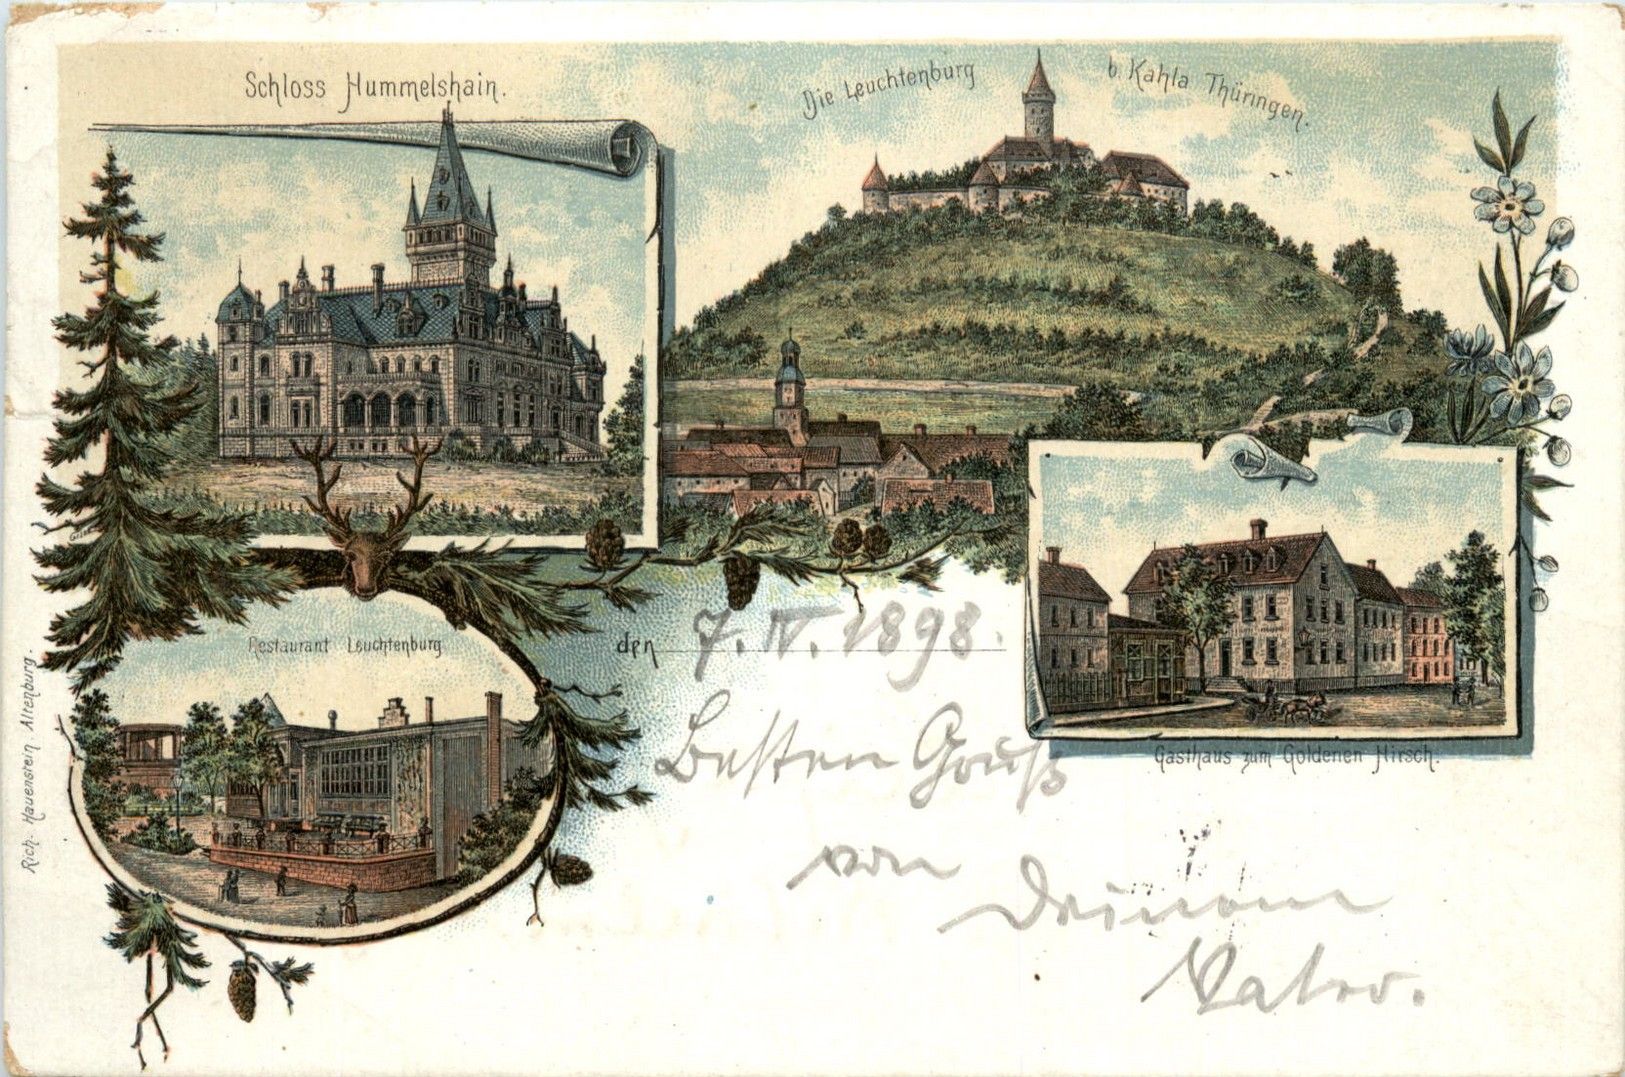 Schloss Hummelshain.
Die Leuchtenburg b. Kahla Thüringen.
Restaurant Leuchtenburg
Gasthaus zum Goldenen Hirsch.
den 7. IV. 1898.
Besten Gruß
von
Deinem
Vater.
Rich. Hauenstein Altenburg.